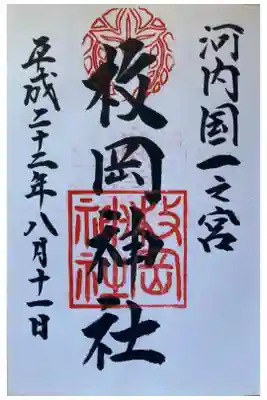 河内国一之宮
枚岡神社
枚岡
神社
平成二十二年八月十一日